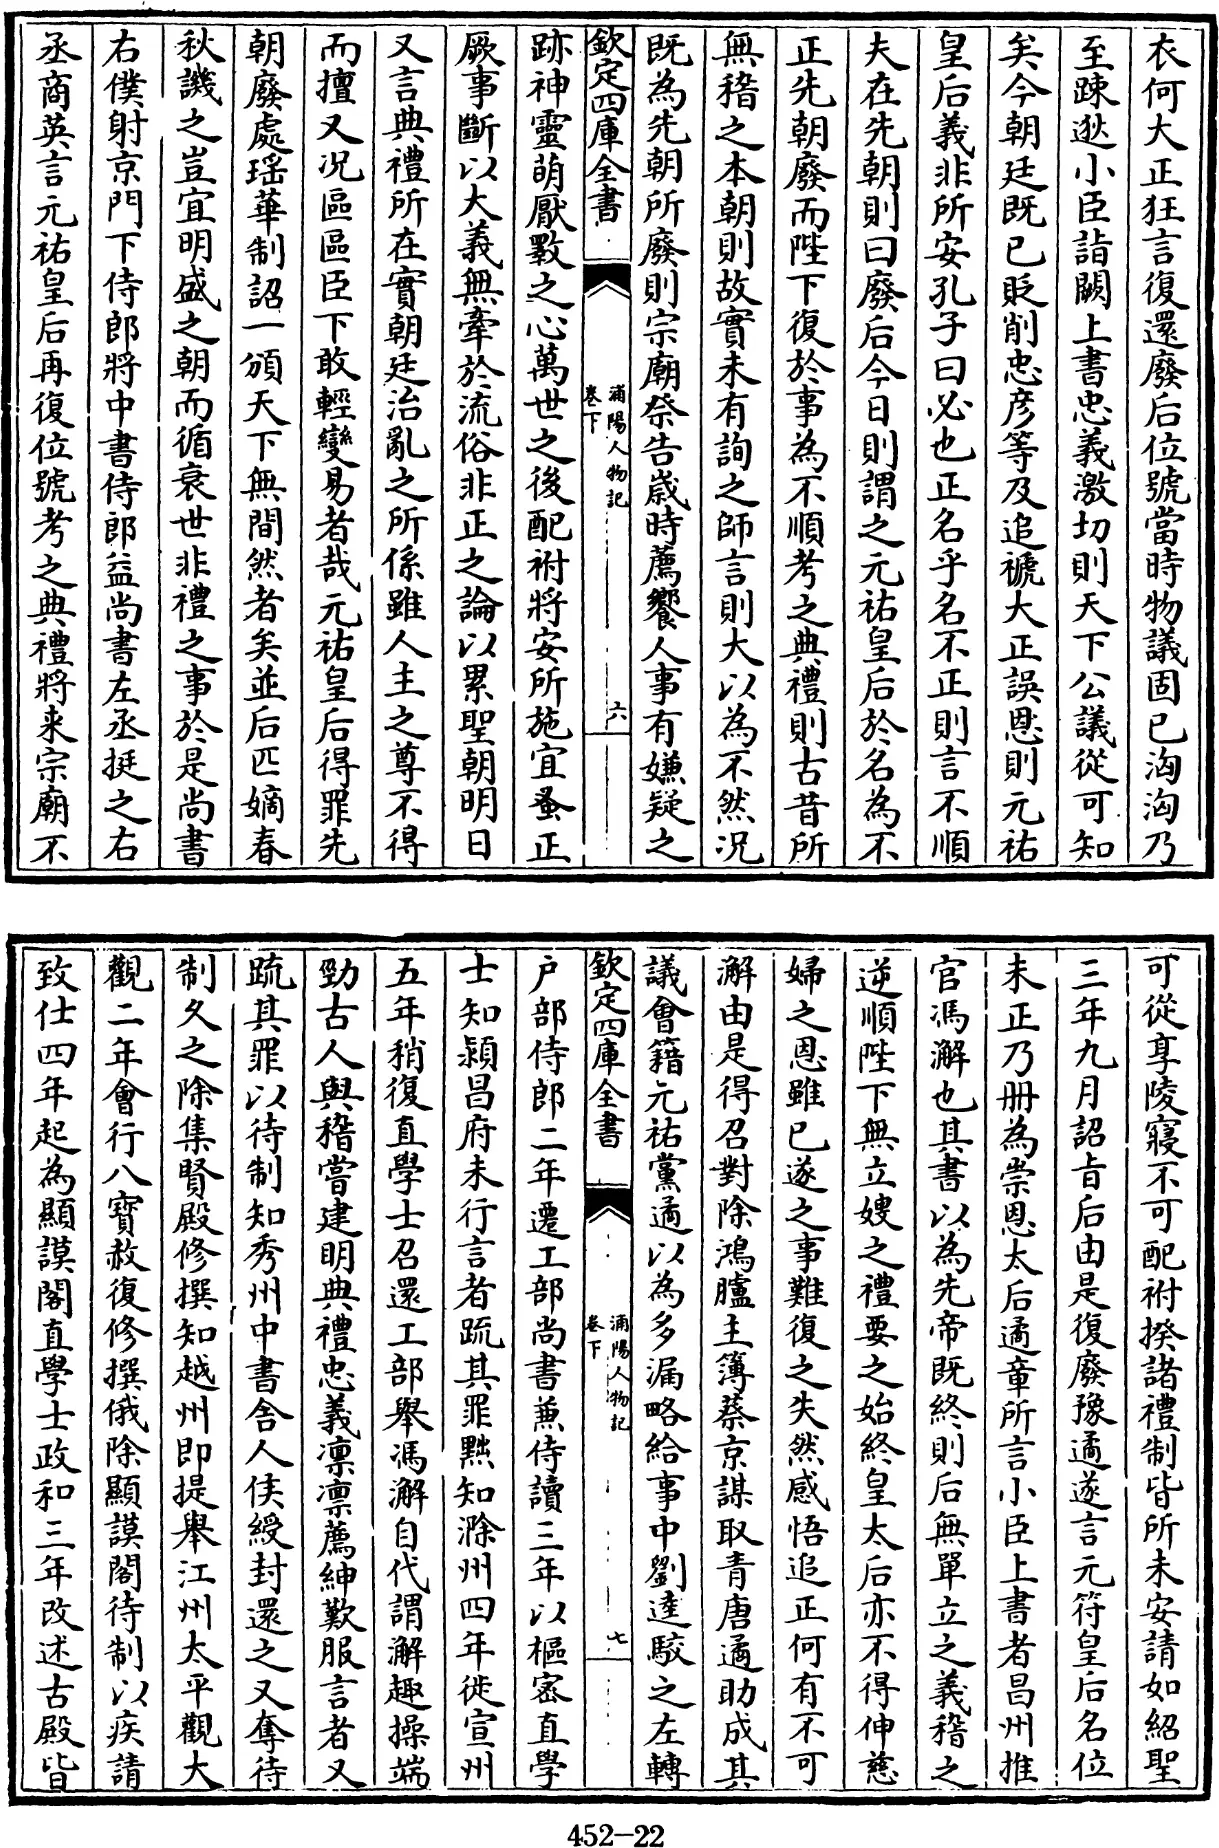 衣何大正狂言復還廢后位號當時物議固已洶洶乃
至踈逖小臣詣闕上書忠義激切則天下公議從可知
矣今朝廷既已貶削忠彦等及追褫大正誤恩則元祐
皇后義非所安孔子曰必也正名乎名不正則言不順
夫在先朝則曰廢后今日則謂之元祐皇后於名為不
正先朝廢而陛下復於事為不順考之典禮則古昔所
無稽之本朝則故實未有詢之師言則大以為不然况
既為先朝所廢則宗廟祭告歳時薦饗人事有嫌疑之
欽定四庫全書
浦陽人物記
卷下
六
跡神靈萌厭斁之心萬世之後配祔將安所施宜蚤正
厥事斷以大義無牽於流俗非正之論以累聖朝明日
又言典禮所在實朝廷治亂之所係雖人主之尊不得
而擅又况區區臣下敢輕變易者哉元祐皇后得罪先
朝廢處瑶華制詔一頒天下無間然者矣並后匹嫡春
秋譏之豈宜明盛之朝而循衰世非禮之事於是尚書
右僕射京門下侍郎將中書侍郎益尚書左丞挺之右
丞商英言元祐皇后再復位號考之典禮將来宗廟不
可從享陵寢不可配祔揆諸禮制皆所未安請如紹聖
三年九月詔旨后由是復廢豫遹遂言元符皇后名位
未正乃册為崇恩太后遹章所言小臣上書者昌州推
官馮澥也其書以為先帝既終則后無單立之義稽之
逆順陛下無立嫂之禮要之始終皇太后亦不得伸慈
婦之恩雖已遂之事難復之失然感悟追正何有不可
澥由是得召對除鴻臚主簿蔡京謀取青唐遹助成其
議會籍元祐黨遹以為多漏略給事中劉逵駮之左轉
欽定四庫全書
浦陽人物記
卷下
七
户部侍郎二年遷工部尚書兼侍讀三年以樞宻直學
士知潁昌府未行言者疏其罪黜知滁州四年徙宣州
五年稍復直學士召還工部舉馮澥自代謂澥趣操端
勁古人與稽嘗建明典禮忠義凛凛薦紳歎服言者又
疏其罪以待制知秀州中書舍人侯綬封還之又奪待
制久之除集賢殿修撰知越州即提舉江州太平觀大
觀二年會行八寳赦復修撰俄除顯謨閣待制以疾請
致仕四年起為顯謨閣直學士政和三年改述古殿皆
452-22